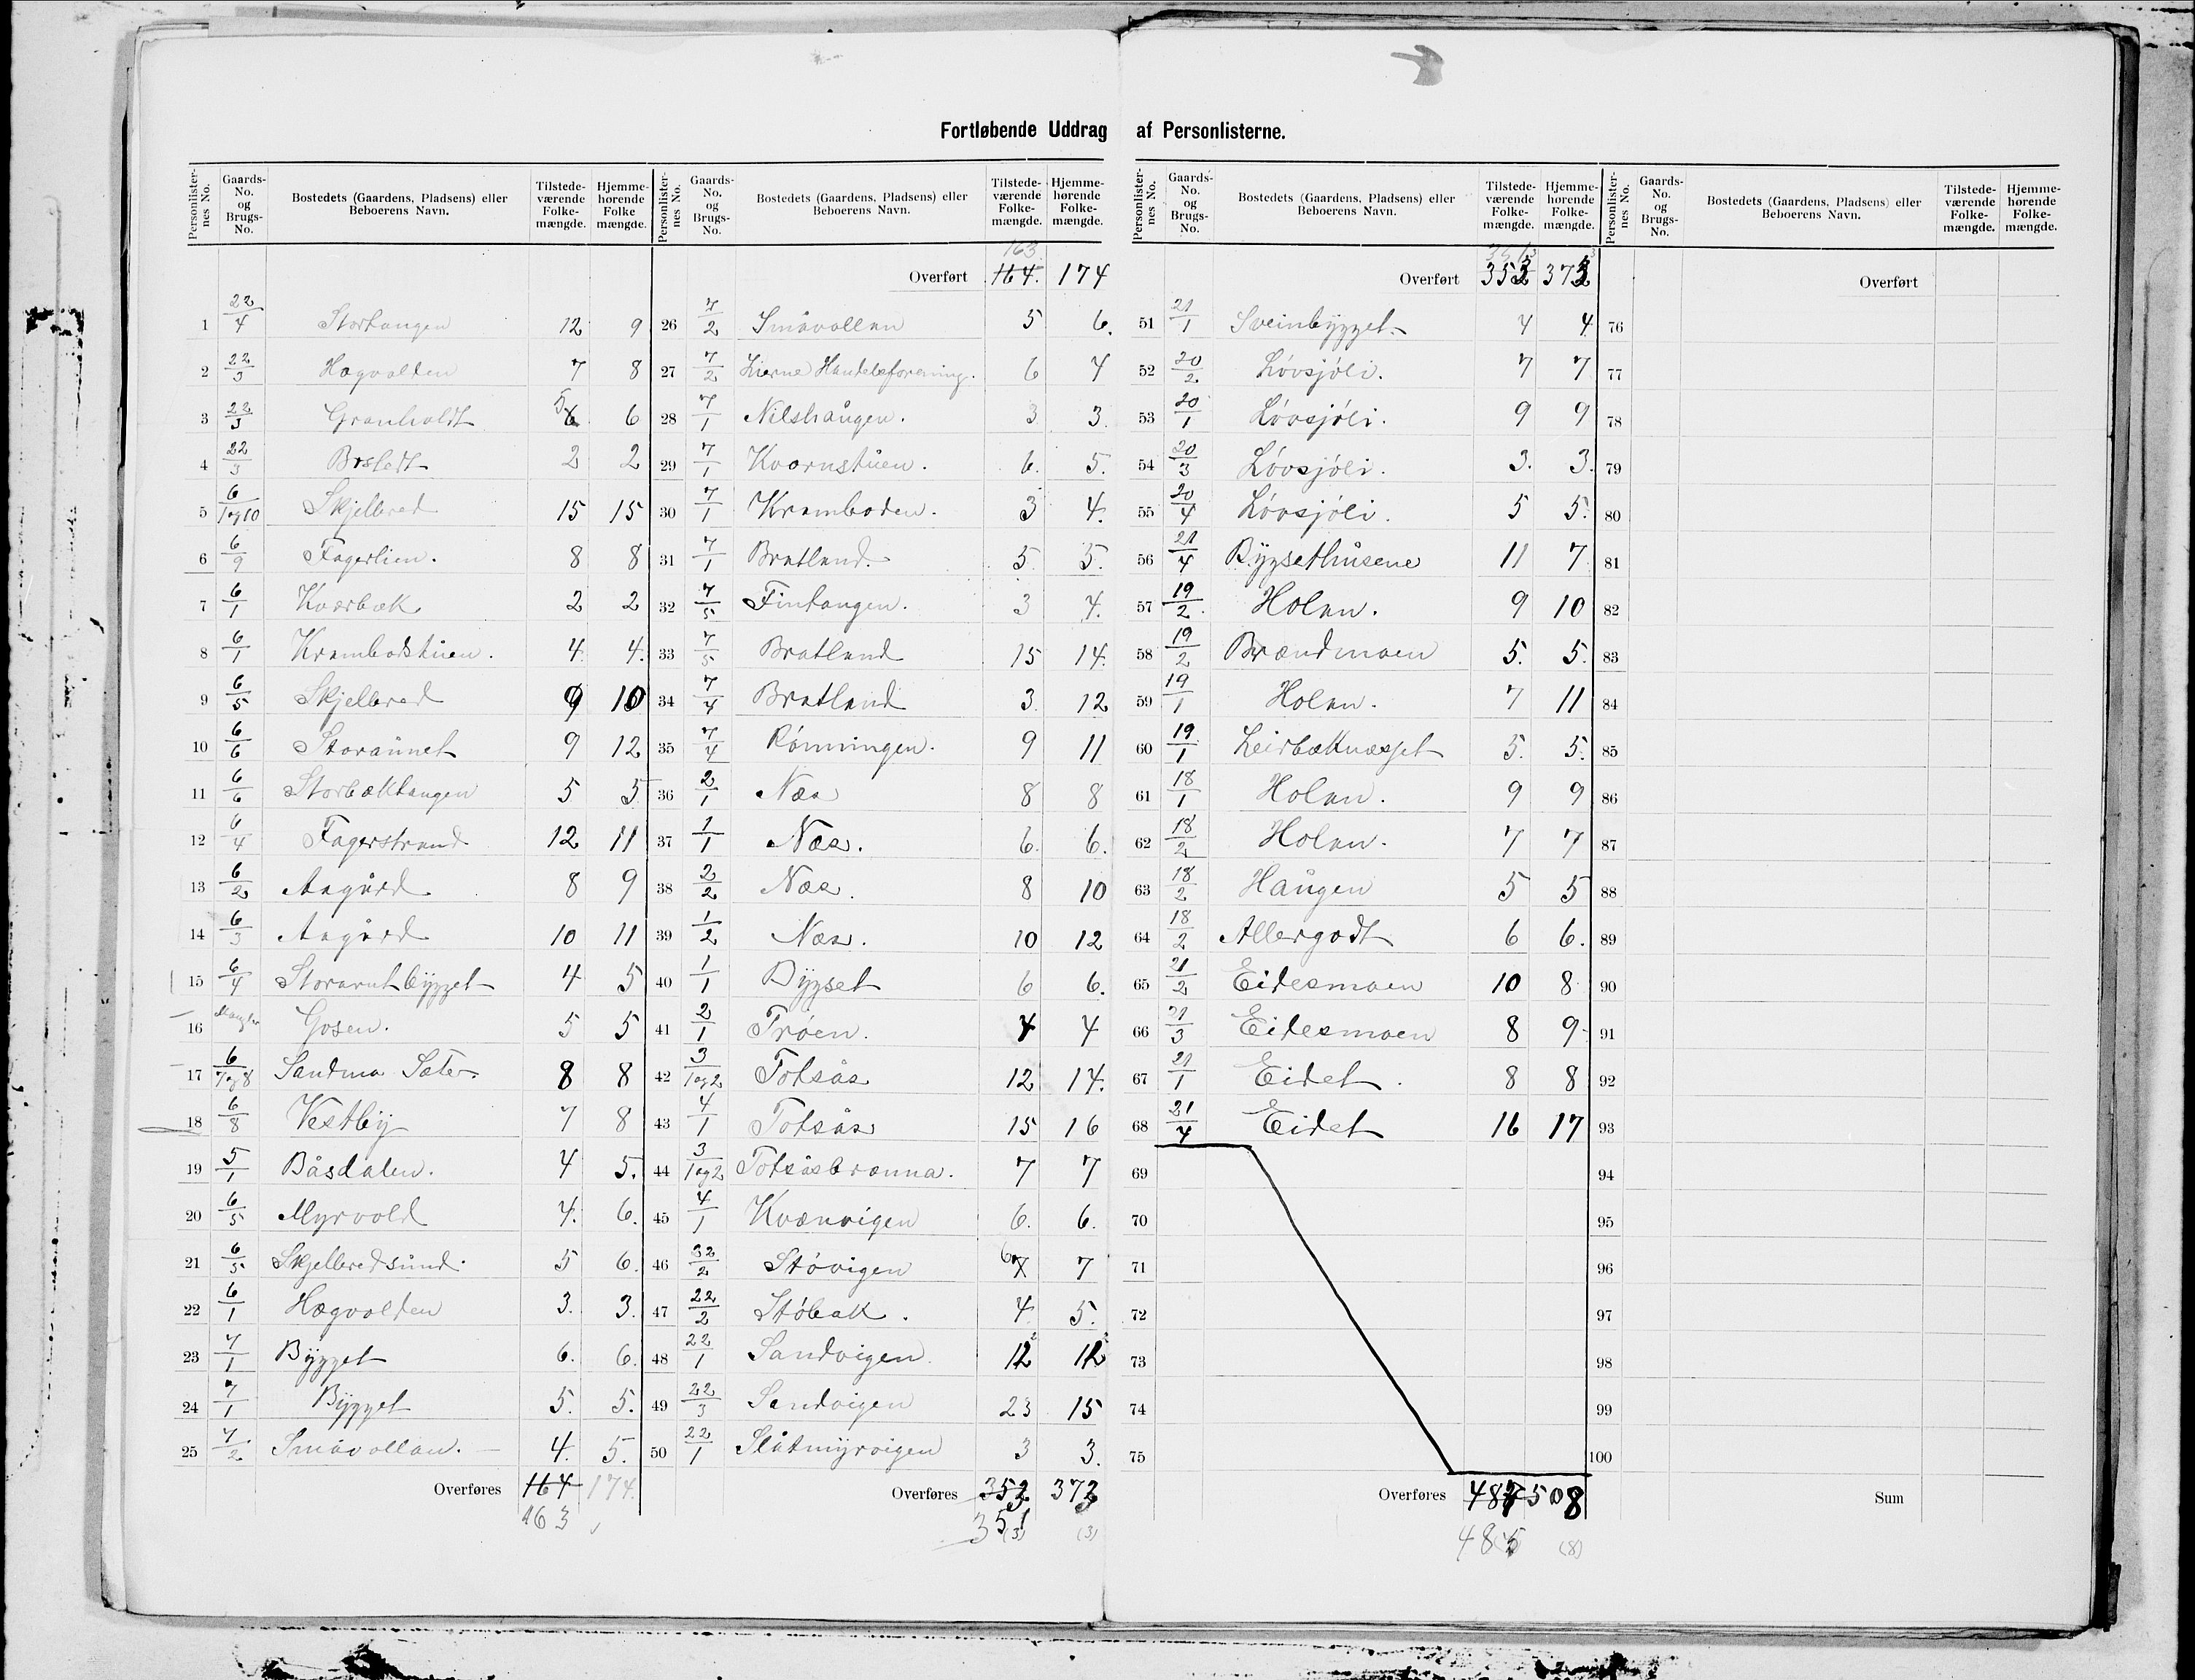 Fortløbende Uddrag af Personlisterne.
Personlister-nes No. Gaards-No. og Brugs-No. Bostedets (Gaardens, Pladsens) eller Beboerens Navn. Tilstede-værende Folke-mængde. Hjemme-hørende Folke mængde.
1 22/4 Stortangen 12 9
2 22/3 Hægvolden 7 8
3 22/3 Granholdt 5 6 6
4 22/3 2 2
5 6/1og10 Skjelbred 15 15
6 6/9 Fagerlien. 8 8
7 6/1 Kværbæk 2 2
8 6/1 Krambodstuen. 4 4.
9 6/5 Skjelbred 9 10
10 6/6 9 12
11 6/6 Storbæktangen 5 5
12 6/4 Fagerstrand 12 11
13 6/2 Aagård 8 9
14 6/3 Aagård 10 11
15 6/4 4 5
16 Mangler Gosen. 5 5
17 6/7og8 8 8
18 6/8 Vestby 7 8
19 5/1 Båsdalen. 4 5.
20 6/5 Myrvold 4. 6.
21 6/5 Skjelbredsund. 5 6.
22 6/1 Hægvolden 3. 3.
23 7/1 Bygget 6. 6.
24 7/1 Bygget 5. 5.
25 7/2 Småvollan. 4. 5.
Overføres 164 174.
163
Personlister-nes No. Gaards-No. og Brugs-No. Bostedets (Gaardens, Pladsens) eller Beboerens Navn. Tilstede-værende Folke-mængde. Hjemme-hørende Folke-mængde.
163
Overført 164. 174
26 7/2 Småvollan 5 6.
27 7/2 Lierne Handelsforening. 6 4
28 7/1 Nilshaugen. 3 3.
29 7/1 Kvornstuen. 6. 5.
30 7/1 Kramboden. 3 4.
31 7/1 Bratland. 5. 5.
32 7/5 Fintangen. 3 4.
33 7/5 Bratland 15 14.
34 7/4 Bratland 3. 12
35 7/4 Rønningen. 9 11
36 2/1 Næs 8 8
37 1/1 Næs. 6. 6.
38 2/2 Næs. 8 10
39 1/2 Næs. 10 12
40 1/1 Bygset 6 6.
41 2/1 Trøen. 4 4
42 3/1og2 Totsås 12 14.
43 4/1 Totsås 15 16
44 3/1og2 Totsåsbrænna. 7 7
45 4/1 Kvænvigen 6. 6.
46 22/2 Støvigen 6 7 7
47 22/2 Støbæk. 4. 5.
48 22/1 Sandvigen. 12 12
49 22/3 Sandvigen 23 15
50 22/1 Slåtmyrvigen 3 3.
Overføres 353 373
351 (3) (3)
Personlister-nes No. Gaards-No. og Brugs-No. Bostedets (Gaardens, Pladsens) eller Beboerens Navn. Tilstede-værende Folke-mængde. Hjemme-hørende Folke-mængde.
Overført 353 373
51 21/1 Sveinbygget. 4 4
52 20/2 Løvsjøli. 7 7
53 20/1 Løvsjøli. 9 9
54 20/3 Løvsjøli. 3. 3.
55 20/4 Løvsjøli. 5 5.
56 21/4 Bygsethusene 11 7
57 19/2 Holan. 9 10
58 19/2 Brændmoen 5. 5.
59 19/1 Holan. 7 11
60 19/1 Leirbæknæsset 5. 5.
61 18/1 Holan. 9 9
62 18/2 Holan. 7 7
63 18/2 Haugen 5 5
64 18/2 Allergodt 6 6.
65 21/2 Eidesmoen 10 8
66 21/3 Eidesmoen 8 9
67 21/1 Eidet. 8 8
68 21/4 Eidet 16 17
69
70
71
72
73
74
75
Overføres 487 508
485 (8)
Personlister-nes No. Gaards-No. og Brugs-No. Bostedets (Gaardens, Pladsens) eller Beboerens Navn. Tilstede-værende Folke-mængde. Hjemme-hørende Folke-mængde.
Overført
76
77
78
79
80
81
82
83
84
85
86
87
88
89
90
91
92
93
94
95
96
97
98
99
100
Sum